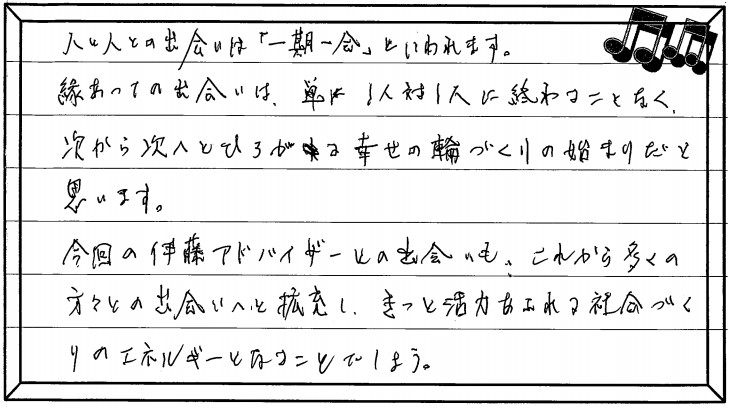 人と人との出会いは「一期一会」といわれます。
縁あっての出会いは、単に1人対1人に終わることなく、
次から次へとひろがる幸せの輪づくりの始まりだと
思います。
今回の伊藤アドバイザーとの出会いも、これから多くの
方々との出会いへと拡充し、きっと活力あふれる社会づく
りのエネルギーとなることでしょう。